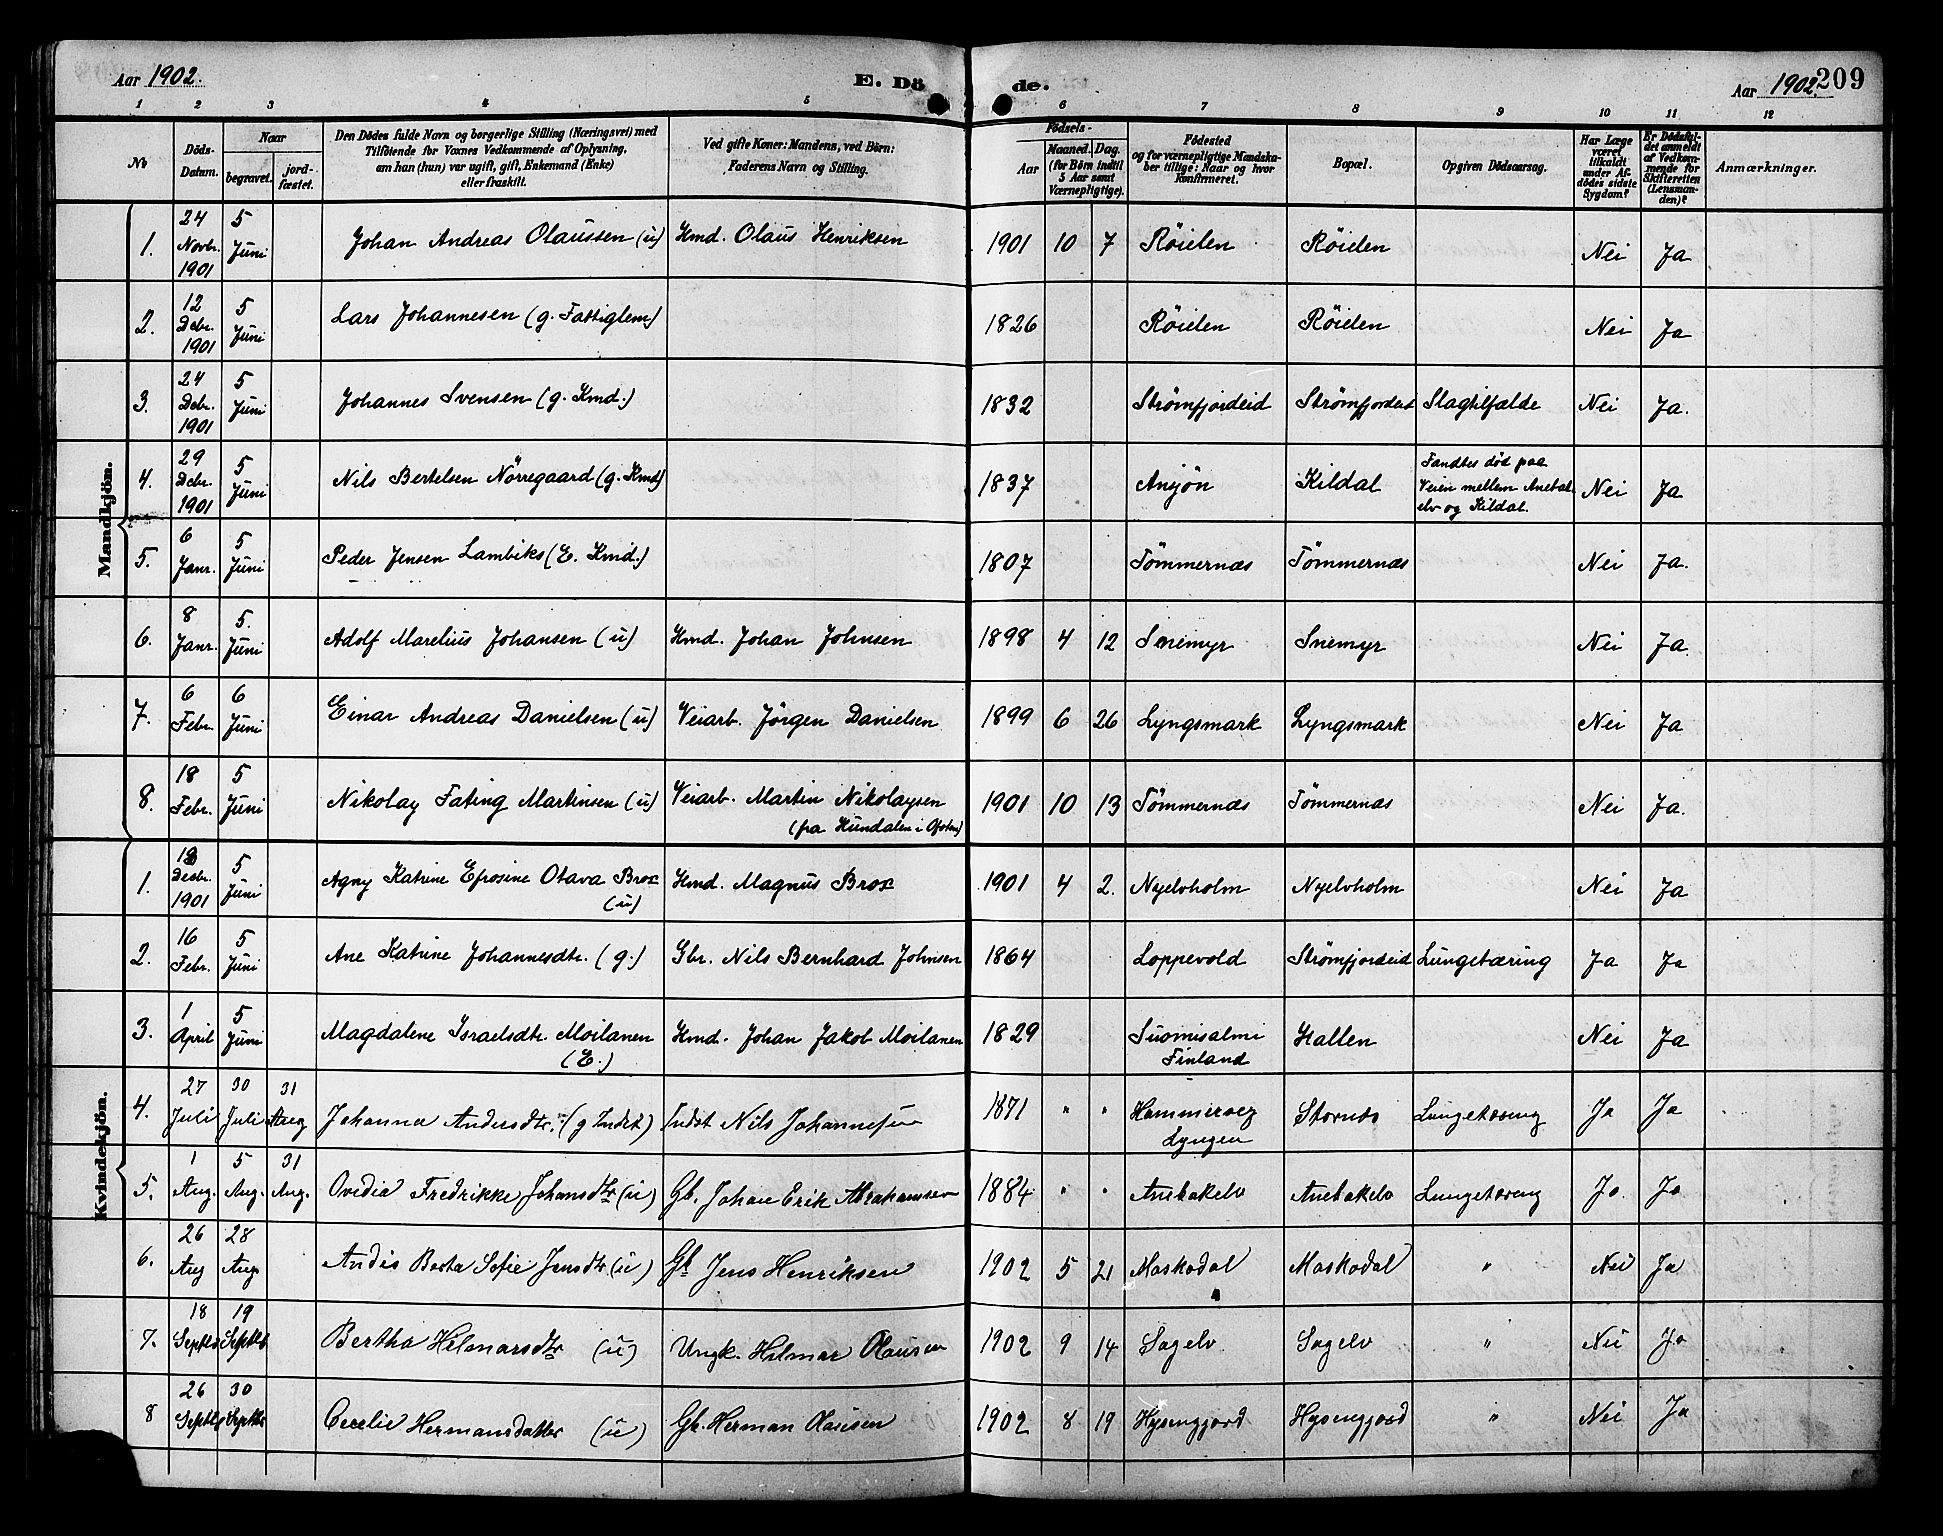 Aar 1902. E. Dö de. Aar 1902. 209
1 2 3 4 5 6 7 8 9 10 11 12
No
Döds-Datum.
Naar
begravet.
jord-fæstet.
Den Dödes fulde Navn og borgerlige Stilling (Næringsvei) med
Tilföiende for Voxnes Vedkommende af Oplysning,
om han (hun) var ugift, gift, Enkemand (Enke)
eller fraskilt.
Ved gifte Koner: Mandens, ved Börn:
Faderens Navn og Stilling.
Födsels-
Aar
Maaned. Dag.
(for Börn indtil
5 Aar samt
Værnepligtige).
Födested
og for værnepligtige Mandska-
ber tillige: Naar og hvor
konfirmeret.
Bopæl.
Opgiven Dödsaarsag.
Har Læge
været
tilkaldt
under Af-
dödes sidste
Sygdom?
Er Dödsfal-
det anmeldt
af Vedkom-
mende for
Skifteretten
(Lensman-
den)?
Anmærkninger.
Mandkjön.
1. 24 Novbr. 1901 5 Juni Johan Andreas Olaussen (u) Kmd. Olaus Henriksen 1901 10 7 Røielen Røielen Nei Ja
2. 12 Debr. 1901 5 Juni Lars Johannesen (g. Fattiglem) 1826 Røielen Røielen Nei Ja
3. 24 Debr. 1901 5 Juni Johannes Svensen (g. Kmd.) 1832 Strømfjordeid Strømfjordeid Slagtilfælde Nei Ja.
4. 29 Debr. 1901 5 Juni Nils Bertelsen Nörregaard (g. Kmd) 1837 Anjön Kildal Fandtes död paa
Veien mellem Anebak
elv og Kildal. Nei Ja
5. 6 Janr. 5 Juni Peder Jensen Lambiks (E. Kmd.) 1807 Tömmernæs Tömmernæs Nei Ja.
6. 8 Janr. 5. Juni Adolf Marelius Johansen (u) Kmd. Johan Johnsen 1898 4 12 Snemyr Snemyr Nei Ja.
7. 6 Febr. 6 Juni Einar Andreas Danielsen (u) Veiarb. Jørgen Danielsen 1899 6 26 Lyngsmark Lyngsmark Nei Ja
8. 18 Febr. 5 Juni Nikolay Fating Martinsen (u) Veiarb. Martin Nikolaysen
(fra Hundalen i Ofoten) 1901 10 13 Tömmernæs Tömmernæs Nei Ja.
Kvindekjön.
1. Decbr. 1901 5 Juni Agny Katrine Efrosine Otava Brox
(u) Kmd. Magnus Brox 1901 4 2. Nyelvholm Nyelvholm Nei Ja
2. 16 Febr. 5 Juni Ane Katrine Johannesdtr. (g.) Gbr. Nils Bernhard Johnsen 1864 Loppevold Strømfjordeid Lungetæring Ja Ja
3. 1 April 5 Juni Magdalene Israelsdtr. Moilanen
(E.) Kmd. Johan Jakob Moilanen 1829 Suomisalmi
Finland Hallen Nei Ja
4. 27 Juli 30 Juli 31 Aug Johanna Andersdtr. (g Indst) Indst Nils Johannesen 1871 " " Hammerveg
Lyngen Stornes Lungetæring Ja Ja
5. 1 Aug. 5 Aug. 31 Aug. Ovedia Fredrikke Johansdtr (u) Gb. Johan Erik Abrahamsen 1884 " " Anebakelv Anebakelv Lungetæring Ja Ja
6. 26 Aug 28 Aug. Andis Berta Sofie Jensdtr (u) Gb Jens Henriksen 1902 5 21 Maskodal Maskodal " Nei Ja
7. 18 Septbr 19 Septbr Bertha Hilmarsdtr (u) Ungk. Hilmar Olausen 1902 9 14 Sagelv Sagelv " Nei Ja
8 26 Septbr 30 Septbr Cecelie Hermansdatter (u) Gb. Herman Olausen 1902 8 19 Hysengjord Hysengjord " Nei Ja